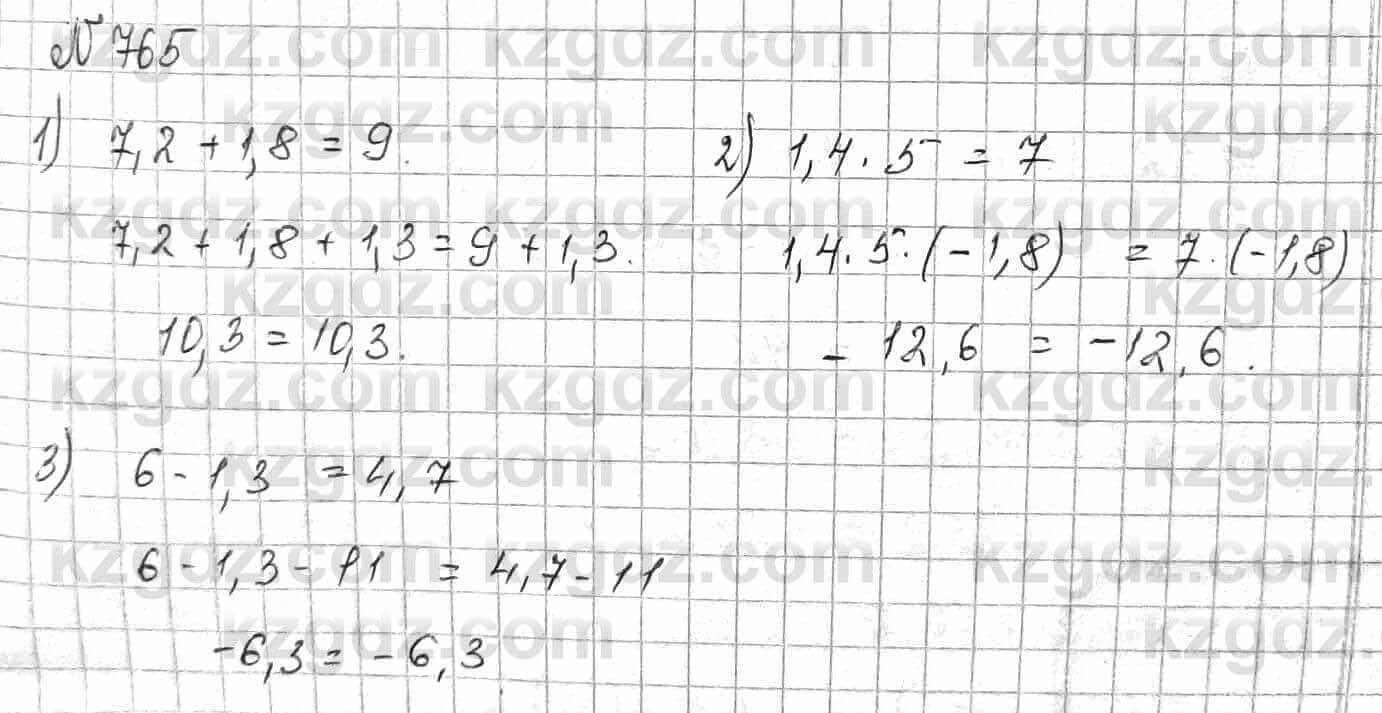 № 765
1) 7,2 + 1,8 = 9.
7,2 + 1,8 + 1,3 = 9 + 1,3.
10,3 = 10,3.
2) 1,4 · 5 = 7
1,4 · 5 · (-1,8) = 7 · (-1,8)
- 12,6 = -12,6.
3) 6 - 1,3 = 4,7
6 - 1,3 - 11 = 4,7 - 11
-6,3 = -6,3
kzgdz.com kzgdz.com kzgdz.com
kzgdz.com kzgdz.com
kzgdz.com kzgdz.com kzgdz.com
kzgdz.com kzgdz.com
kzgdz.com kzgdz.com kzgdz.com
kzgdz.com kzgdz.com
kzgdz.com kzgdz.com kzgdz.com
kzgdz.com kzgdz.com